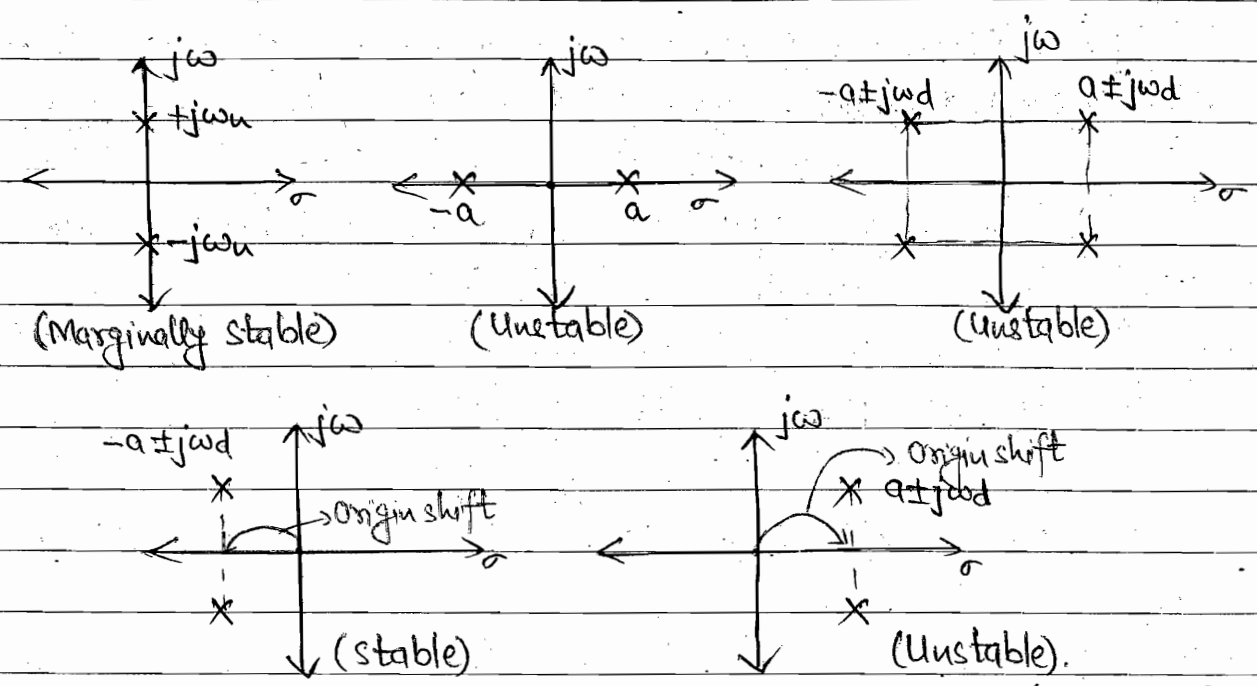 jω
+jωn
σ
-jωn
(Marginally stable)
jω
-a
a
σ
(Unstable)
jω
-a±jωd
a±jωd
σ
(Unstable)
jω
-a±jωd
Origin shift
σ
(Stable)
jω
Origin shift
a±jωd
σ
(Unstable).